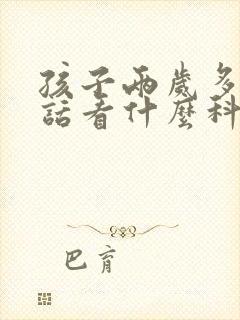 孩子兩歲多
話看什麼科
巴育